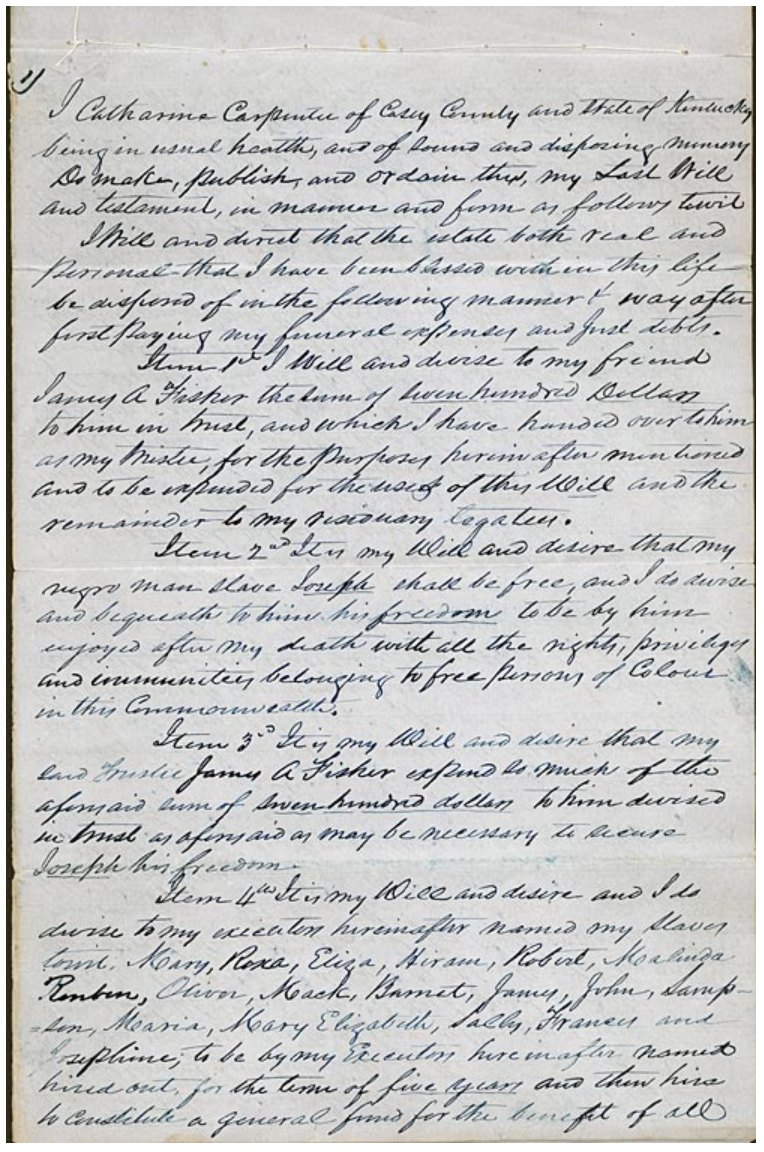 1)
I Catharine Carpenter of Casey County and State of Kentucky
being in usual health, and of sound and disposing memory
Do make, publish, and ordain this, my Last Will
and testament, in manner and form as follows towit
I Will and direct that the estate both real and
Personal that I have been blessed with in this life
be disposed of in the following manner & way after
first Paying my funeral expenses and Just debts.
Item 1st I Will and devise to my friend
James A Fisker the sum of seven hundred Dollars
to him in trust, and which I have handed over to him
as my trustee, for the Purposes herein after mentioned
and to be expended for the uses of this Will and the
remainder to my residuary legatees.
Item 2nd It is my Will and desire that my
negro man slave Joseph shall be free, and I do devise
and bequeath to him his freedom to be by him
enjoyed after my death with all the rights, privileges
and immunities belonging to free Persons of Colour
in this Commonwealth.
Item 3rd It is my Will and desire that my
said Trustee James A Fisker expend so much of the
aforesaid sum of seven hundred dollars to him devised
in trust as aforesaid as may be necessary to secure
Joseph his freedom.
Item 4th It is my Will and desire and I do
devise to my executors hereinafter named my slaves
towit. Mary, Roxa, Eliza, Hiram, Robert, Malinda
Reuben, Oliver, Mack, Burnet, James, John, Samp-
=son, Maria, Mary Elizabeth, Sally, Frances and
Josephine; to be by my Executors hereinafter named
hired out, for the term of five years and their hire
to constitute a general fund for the benefit of all